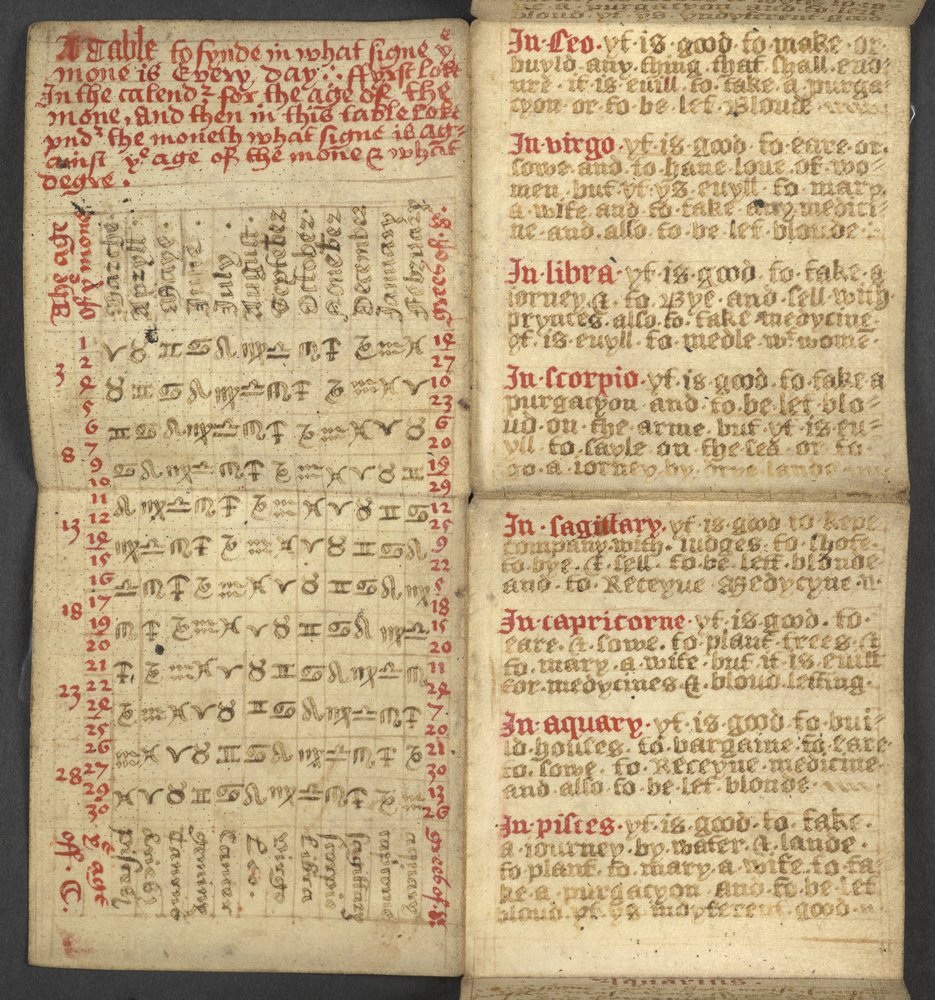 A Table to fynde in what signe yͤ
mone is Every day ∵ ffyrst loke
In the calendꝛ for the age of the
mone, and then in this table loke
vndꝛ the moneth what signe is ag=
ainst yͤ age of the mone & what
degre .
The age
of yͤ mone
Marche
Apryll
Maye
June
July
August
September
October
November
December
January
Februarye
grees of s.
1 ♈ ♉ ♊ ♋ ♌ ♍ ♎ ♏ ♐ ♑ ♒ ♓ 14
2 27
3 4 ♉ ♊ ♋ ♌ ♍ ♎ ♏ ♐ ♑ ♒ ♓ ♈ 10
5 23
6 ♊ ♋ ♌ ♍ ♎ ♏ ♐ ♑ ♒ ♓ ♈ ♉ 6
7 20
8 9 ♋ ♌ ♍ ♎ ♏ ♐ ♑ ♒ ♓ ♈ ♉ ♊ 19
10 29
11 ♌ ♍ ♎ ♏ ♐ ♑ ♒ ♓ ♈ ♉ ♊ ♋ 12
13 12 25
14 ♍ ♎ ♏ ♐ ♑ ♒ ♓ ♈ ♉ ♊ ♋ ♌ 9
15 22
16 ♎ ♏ ♐ ♑ ♒ ♓ ♈ ♉ ♊ ♋ ♌ ♍ 5
18 17 18
19 ♏ ♐ ♑ ♒ ♓ ♈ ♉ ♊ ♋ ♌ ♍ ♎ 15
20 20
21 ♐ ♑ ♒ ♓ ♈ ♉ ♊ ♋ ♌ ♍ ♎ ♏ 11
23 22 24
24 ♑ ♒ ♓ ♈ ♉ ♊ ♋ ♌ ♍ ♎ ♏ ♐ 7
25 20
26 ♒ ♓ ♈ ♉ ♊ ♋ ♌ ♍ ♎ ♏ ♐ ♑ 21
28 27 30
29 ♓ ♈ ♉ ♊ ♋ ♌ ♍ ♎ ♏ ♐ ♑ ♒ 13
30 26
Cancer
Leo
virgo
Libra
sagittary
capricorne
aquary
In·Leo·yt is good to make or
buyld any thing that shall end=
ure it is euill to take a purga=
cyon or to be let Bloude
In·virgo yt·is good·to eare or
sowe and to haue loue of wo=
men but yt ys euyll to mary
a wife and to take any medici=
ne and allo to be let bloude
In·libra yt·is good·to take·a
iorney & to Bye and sell with
prynces also to take medycine
yt is euyll to medle wͭ wome
In·scorpio·yt·is good·to take a
purgacyon and to be let blo=
ud on the arme but yt is eu=
yll to sayle on the sea or to
go a iorney by drye lande
In·sagittary·yt·is good to kepe
company·with iudges to shote
to bye & sell to be lett bloude
and to Receyue Medycyne
In·capricorne yt·is good·to
eare & sowe to plant trees &
to mary a wife but it is euill
for medycines & bloud letting
In·aquary·yt·is good to bui=
ld houses to bargaine to eare
to sowe to Receyue medicine
and also to be let bloude
In·pisces·yt·is good·to take·
a iourney by water & lande
to plant to mary a wife to ta=
ke a purgacyon and to be let
bloud yt ys indyferent good
Aquarius